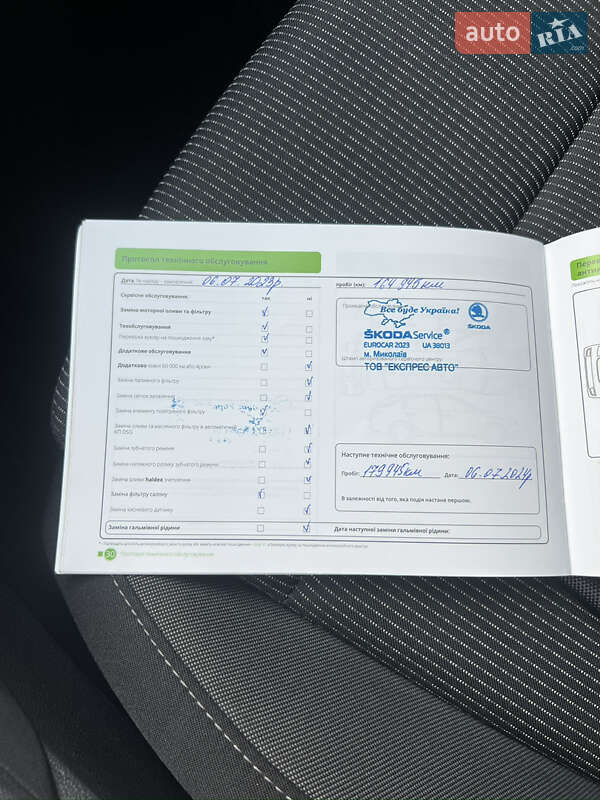 auto RIA.com
Протокол технічного обслуговування
Перев
антик
Дата, № наряду - замовлення: 06.07.2023р
пробіг (км): 164 945 км
Сервісне обслуговування: так ні
Все буде Україна!
Заміна моторної оливи та фільтру
ŠKODA Service®
ŠKODA
Техобслуговування
EUROCAR 2023 UA 38013
Перевірка кузову на пошкодження лаку*
м. Миколаїв
Додаткове обслуговування
Штамп авторизованого сервісного центру
ТОВ "ЕКСПРЕС АВТО"
Додатково кожні 60 000 км або 4роки
Заміна паливного фільтру
Заміна свічок запалення
Заміна елементу повітряного фільтру
Заміна оливи та масляного фільтру в автоматичній
КП DSG
Заміна зубчатого ременя
Наступне технічне обслуговування:
Заміна натяжного ролику зубчатого ременя
Пробіг: 179 945 км Дата: 06.07.2024р
Заміна оливи haldex зчеплення
Заміна фільтру салону
В залежності від того, яка подія настане першою.
Заміна кисневого датчику
Заміна гальмівної рідини
Дата наступної заміни гальмівної рідини:
30 Протокол технічного обслуговування